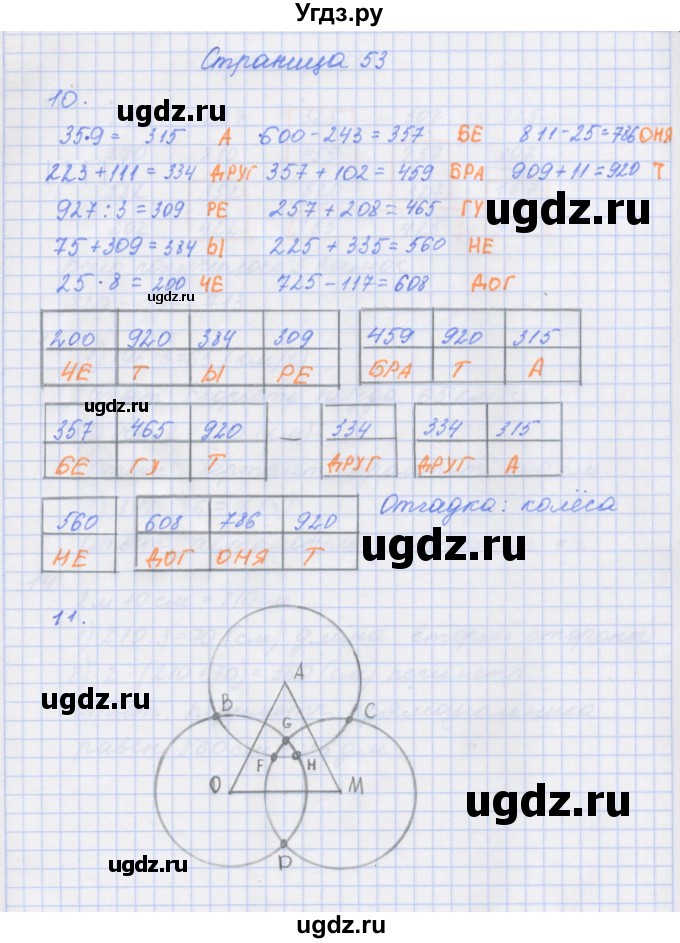 Угдз.ру
Страница 53
10.
ugdz.ru
35·9 = 315 А ·600-243=357 БЕ 811-25=786 ОНЯ
223+111=334 ДРУГ 357+102=459 БРА 909+11=920 Т
927:3=309 РЕ 257+208=465 ГУ
ugdz.ru
75+309=384 Ы 225+335=560 НЕ
25·8=200 ЧЕ 725-117=608 ДОГ
ugdz.ru
200 920 384 309 459 920 315
ЧЕ Т Ы РЕ БРА Т А
ugdz.ru
357 465 920 — 334 334 315
БЕ ГУ Т ДРУГ ДРУГ А
560 608 786 920 Отгадка: колёса
НЕ ДОГ ОНЯ Т
ugdz.ru
11.
A
ugdz.ru
B C
G
F H
O M
ugdz.ru
D
ugdz.ru
ugdz.ru